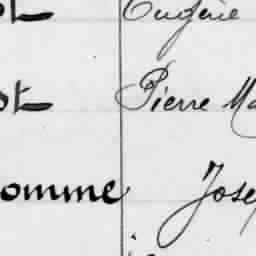 Eugène
Pierre Ma
omme Jose